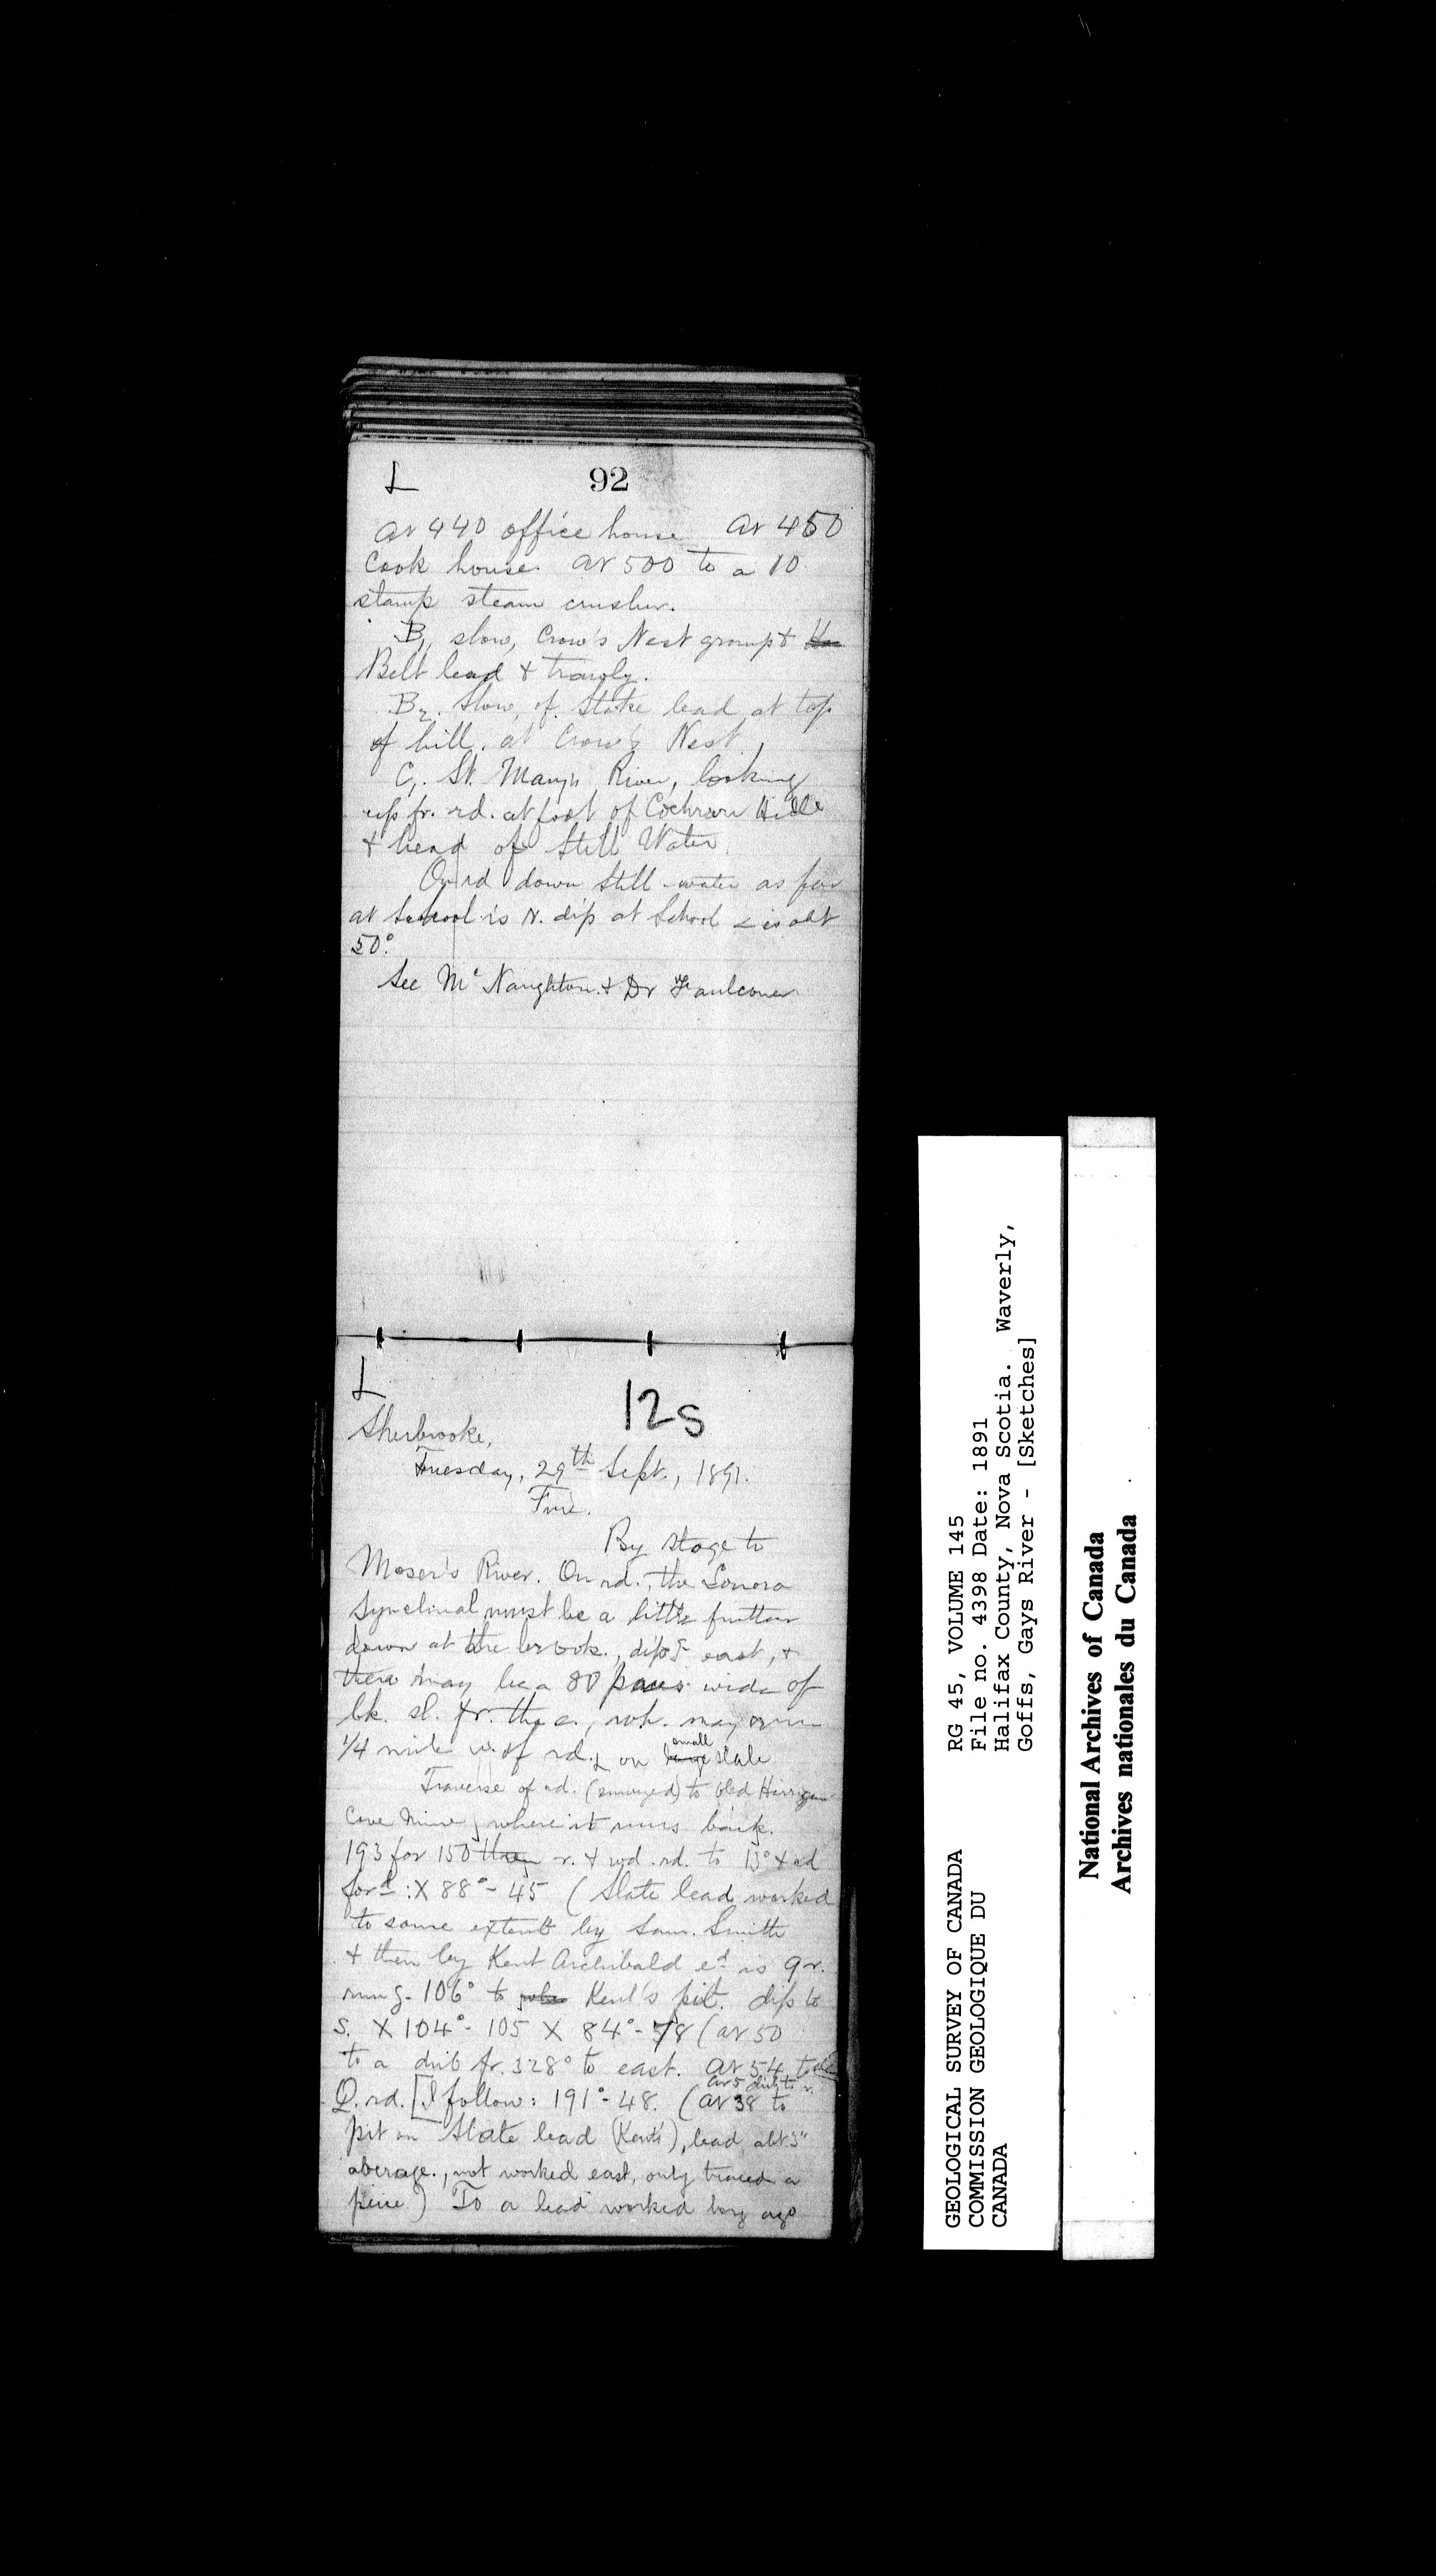 L 92
at 440 office house at 450
Cook house. at 500 to a 10
stamp steam crusher.
B, slow, Crow's Nest group &
Belt lead &
B2. Slow, of Slate lead at top
of hill. at Crow's Nest.
C,. St. Mary's River, looking
up fr. rd. at foot of Cochran Hill
& head of Still Water.
On rd down Still-water as far
at School is N. dip at School < is abt
50°.
See McNaughton & Dr Faulconer
L
12s
Sherbrooke,
Tuesday, 29th Sept., 1891.
Fine.
By stage to
Moser's River. On rd., the Sonora
Synclinal must be a little further
down at the brook., dips east, &
there may be a 80 paces wide of
bk. sl. fr. the a., wh. may
1/4 mile w. of rd. on small slate
Traverse of rd. (surveyed) to Old Harrigan
Cove Mine, where it runs back.
193 for 150 r. & wd. rd. to 13° &
ford: X 88°- 45 (Slate lead worked
to some extent by Sam. Smith
& then by Kent Archibald ed is 9 r.
rung- 106° to Kent's pit. dip to
S. X 104°- 105 X 84°- 78 (at 50
to a fr. 328° to east. at 54 to
at 5 to r.
Q. rd. [I follow: 191°- 48. (at 38 to
pit on Slate lead (Kent's), lead abt 3"
average., not worked east, only traced a
piece) To a lead worked long ago
GEOLOGICAL SURVEY OF CANADA
COMMISSION GEOLOGIQUE DU
CANADA
RG 45, VOLUME 145
File no. 4398 Date: 1891
Halifax County, Nova Scotia. Waverly,
Goffs, Gays River - [Sketches]
National Archives of Canada
Archives nationales du Canada